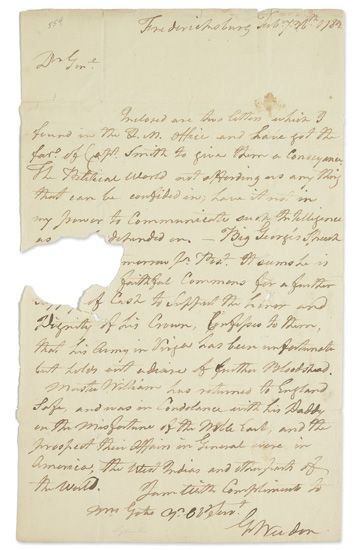 554
Fredericksburg Feb'y 26th 1782
Dr Genl
Inclosed are two letters which I
found in the Q. M. Office and have got the
favr. of Capt. Smith to give them a Conveyance
The Political World not affording us any thing
that can be confided in; have it not in
my power to Communicate such Intelligence
as depended on — Big George's Speech
pr. Post. It seems he is
faithful Commons for a further
of Cash to support the Honor and
Dignity of his Crown, Confesses to them,
that his Army in Virga has been unfortunate
but holds out a desire of further Bloodshed.
Master William has returned to England
Safe, and was in Condolance with his Daddy
on the Misfortune of the Noble Earl, and the
prospect their Affairs in General were in
America, the West Indias and other parts of
the World. I am with Compliments to
Mrs Gates Yr. Ob Servt.
G Weedon